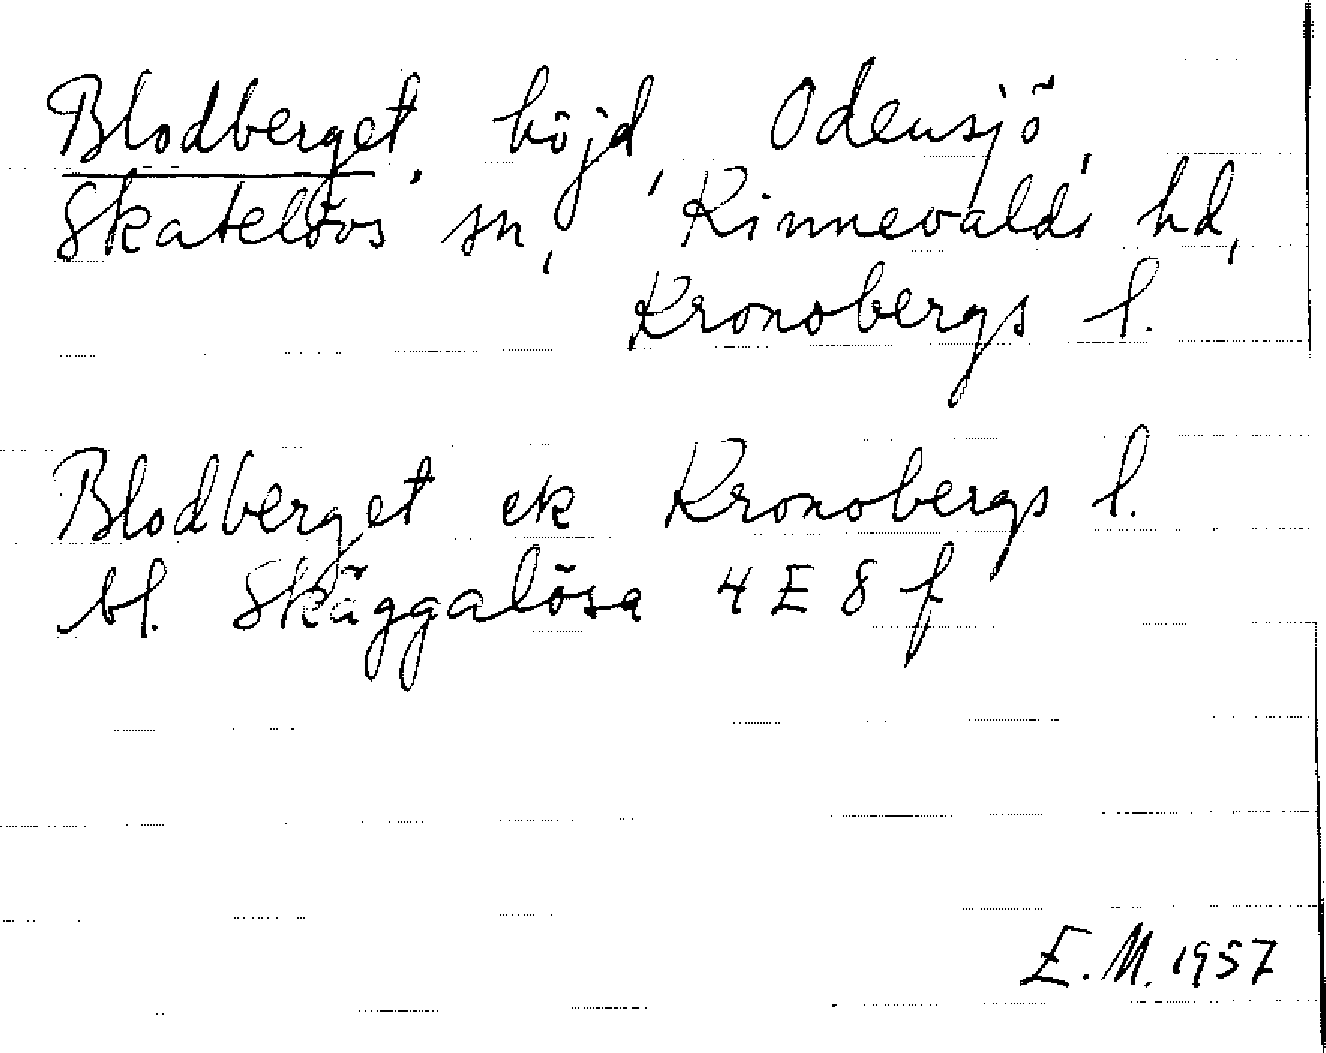 Blodberget, höjd, Odensjö,
Skatelövs sn, Kinnevalds hd,
Kronobergs l.
Blodberget ek Kronobergs l.
bl. Skäggalösa 4E8f
E.M. 1957